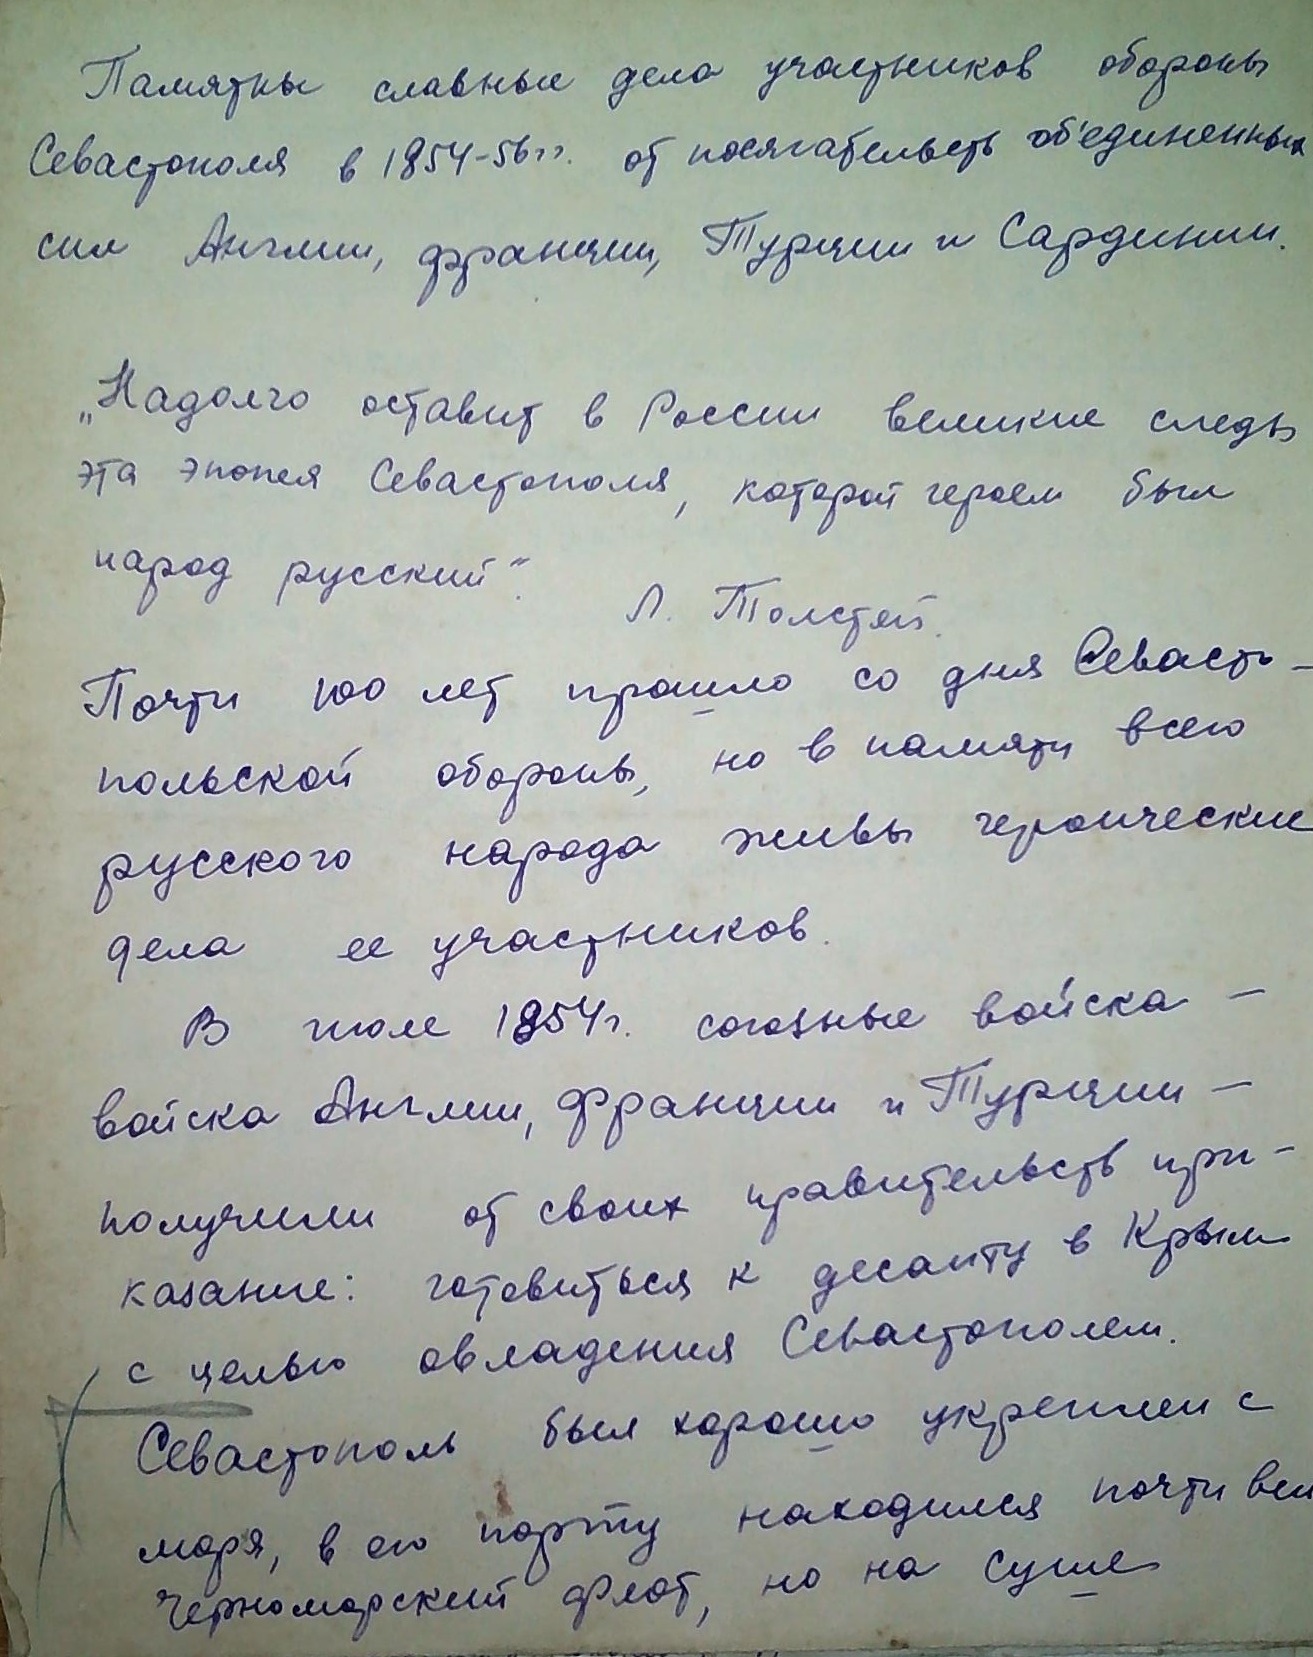 Памятны славные дела участников обороны
Севастополя в 1854-56гг. от посягательств об'единенных
сил Англии, Франции, Турции и Сардинии.
„Надолго оставит в России великие следы
эта эпопея Севастополя, которой героем был
народ русский".
Л. Толстой.
Почти 100 лет прошло со дня Севасто-
польской обороны, но в памяти всего
русского народа живы героические
дела ее участников.
В июле 1854г. союзные войска -
войска Англии, Франции и Турции -
получили от своих правительств при-
казание: готовиться к десанту в Крым
с целью овладения Севастополем.
Севастополь был хорошо укреплен с
моря, в его порту находился почти весь
Черноморский флот, но на суше